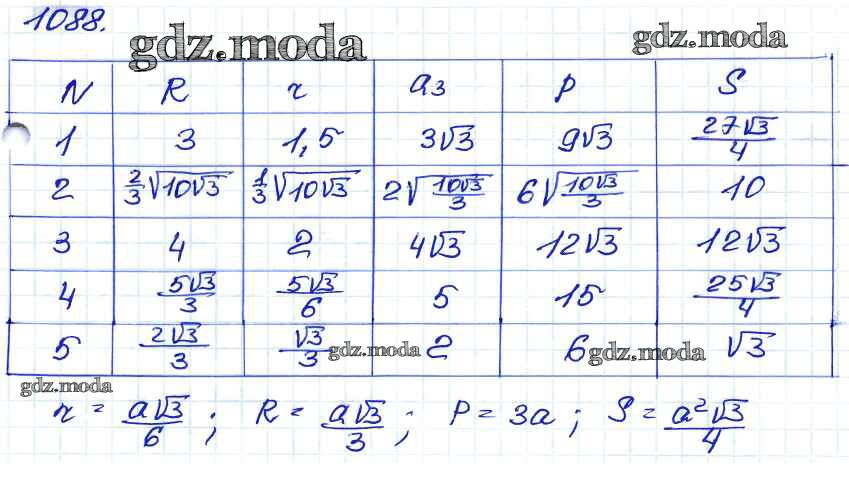 1088.
gdz.moda
gdz.moda
N R r a₃ P S
1 3 1,5 3√3 9√3 27√3/4
2 2/3√(10√3) 1/3√(10√3) 2√(10√3/3) 6√(10√3/3) 10
3 4 2 4√3 12√3 12√3
4 5√3/3 5√3/6 5 15 25√3/4
5 2√3/3 √3/3 2 6 √3
gdz.moda
gdz.moda
gdz.moda
r = a√3/6 ; R = a√3/3 ; P = 3a ; S = a²√3/4